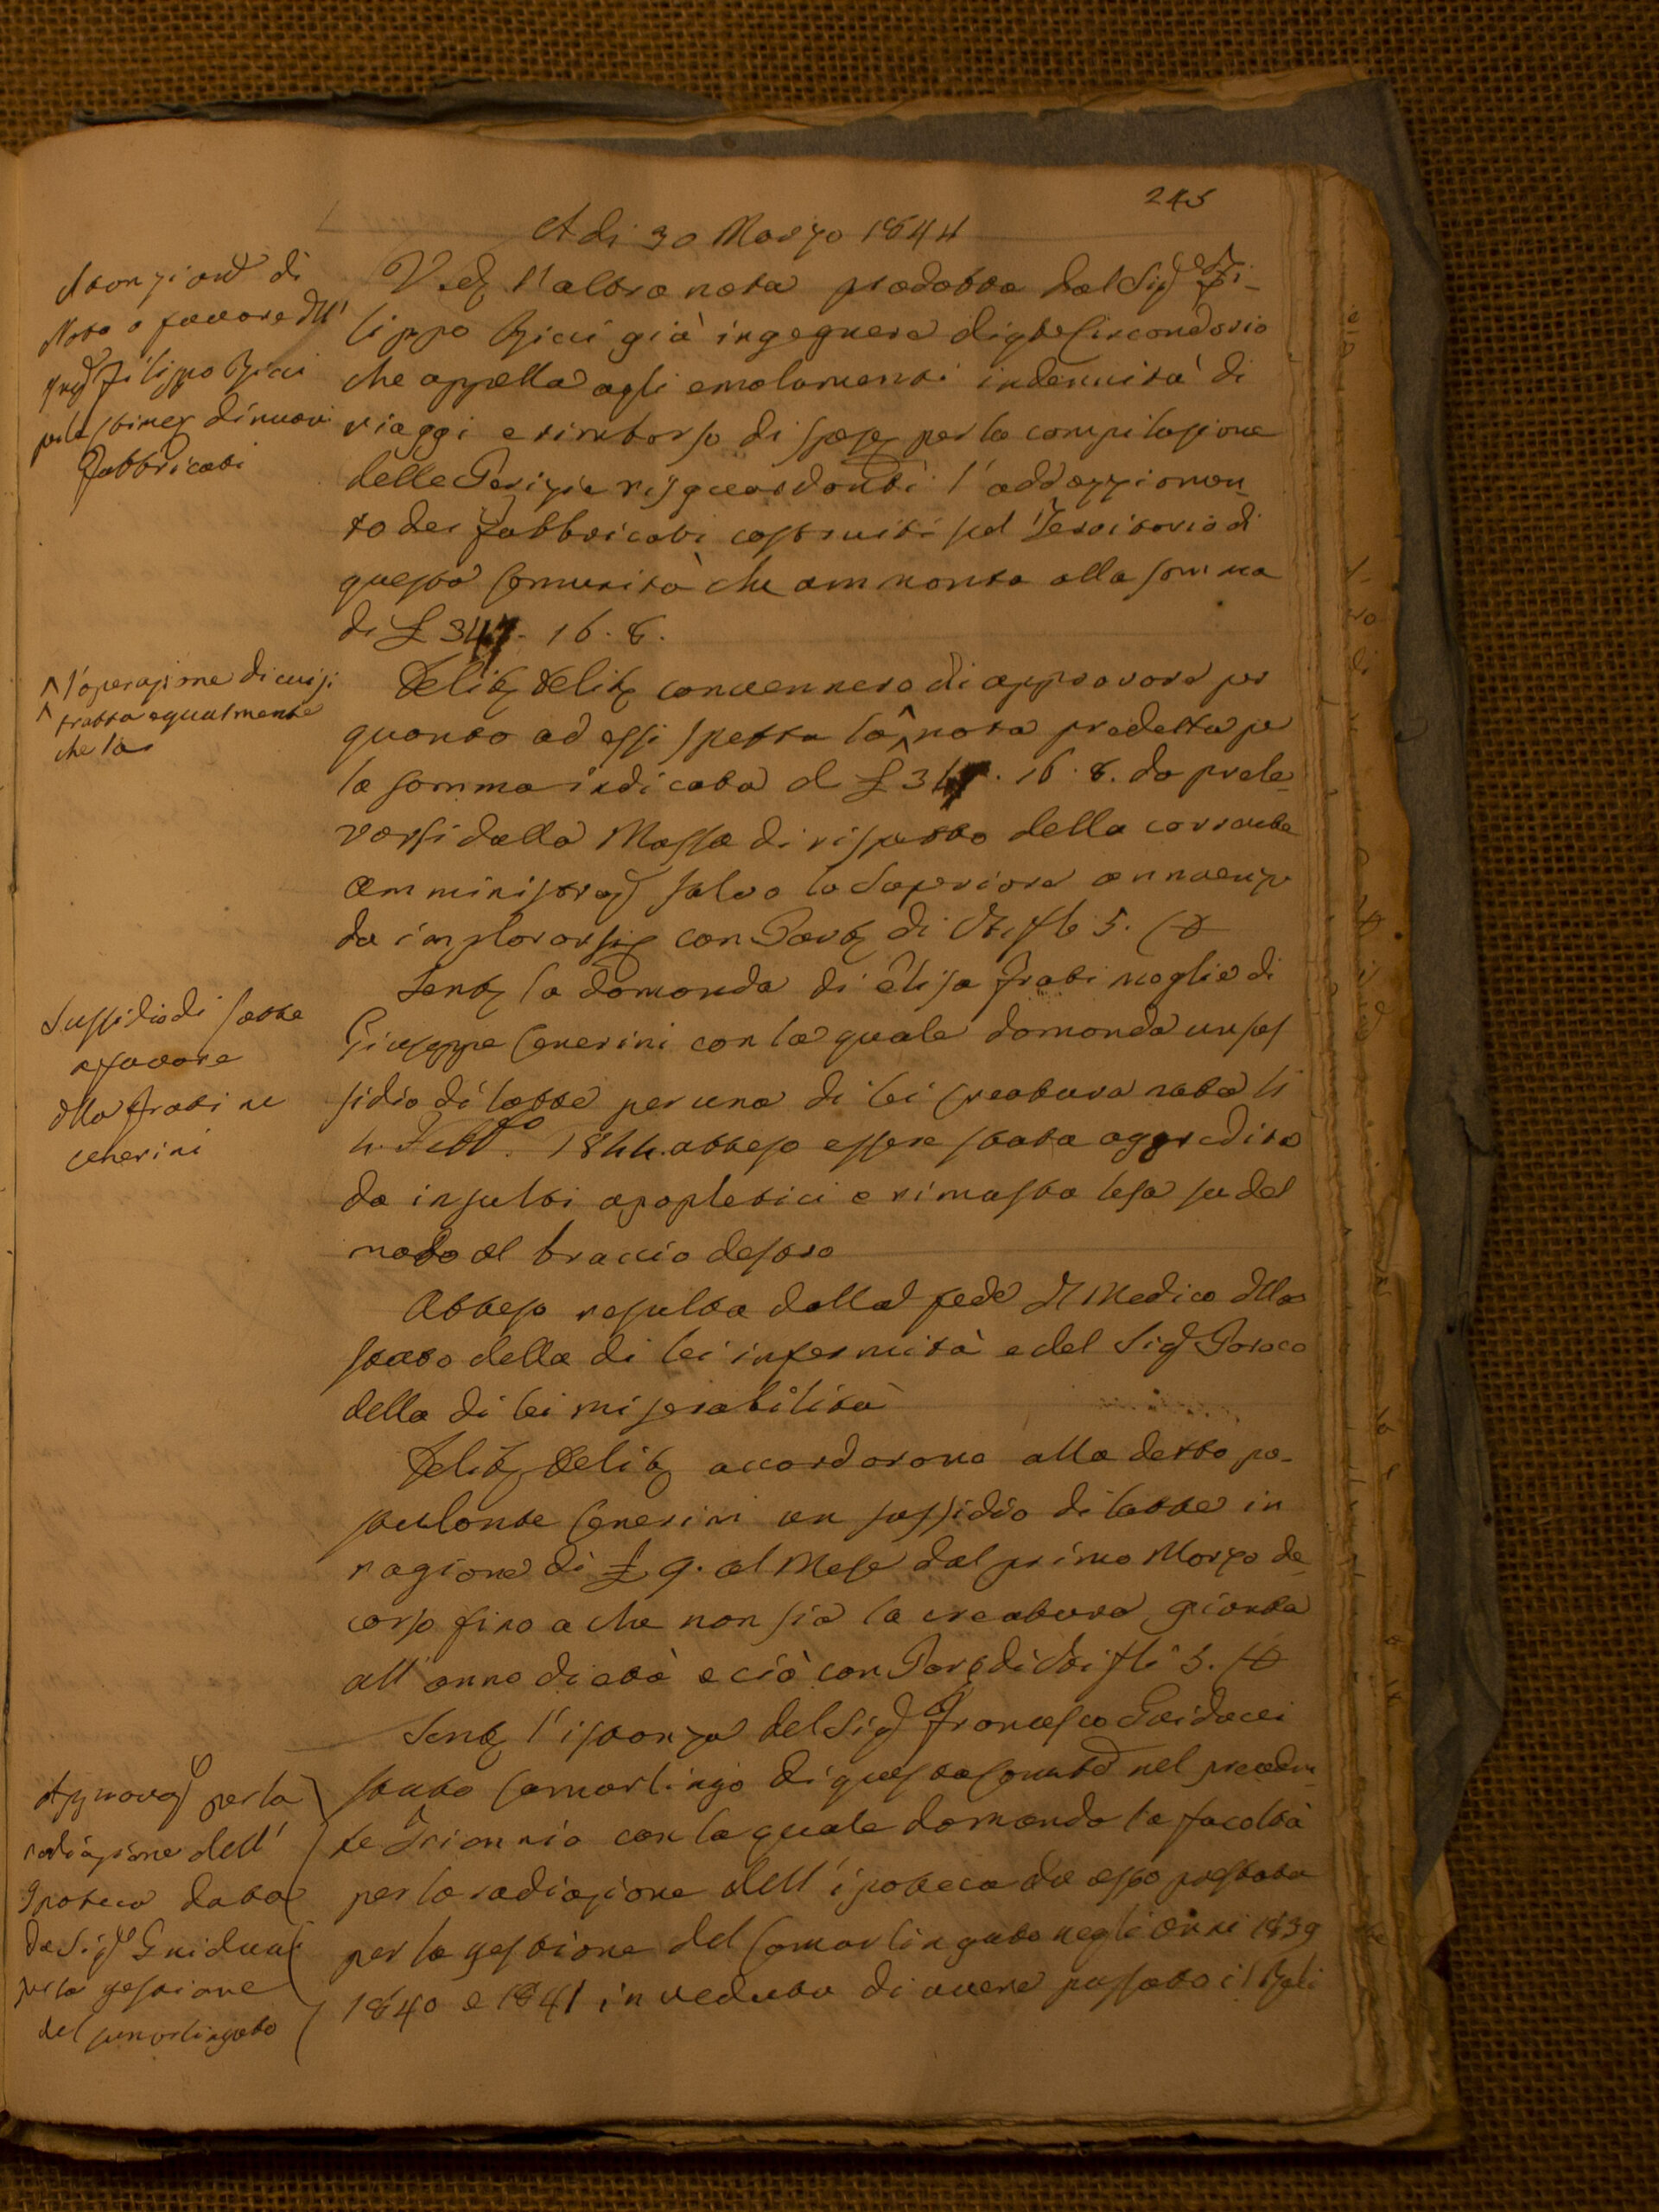 245
Adi 30 Marzo 1844
Stanziamto di
Nota a favore dell'
Ingre Filippo Bicci
per la stima di nuovi
Fabbricati
Vedta l'altra nota prodotta dal Sigre Fi-
lippo Bicci già ingegnere di qto Circondario
che appella agli emolumenti indennità di
viaggi e rimborso di spese per la compilasione
delle Perizie risguardanti l'addazzionamen
to dei fabbricati costruiti sul Territorio di
questa Comunità che ammonta alla somma
di £ 347. 16. 8.
^ l'operazione di cui si
^ tratta egualmente
che la
Delib Delib convennero di approvare per
quanto ad essi spetta la ^ nota predetta per
la somma indicata di £ 347. 16. 8. da prele-
varsi dalla Massa di rispetto della corrente
amministraz salvo la Superiore annuenza
da implorarsi con Part di Vti fli 5. C
Sussidio di latte
a favore
della Frati ne
Cenerini
Sent la domanda di Elisa Frati moglie di
Giuseppe Cenerini con la quale domanda un sus
sidio di latte per una di lei creatura nata li
4. Febbo 1844. atteso essere stata aggredita
da insulti apopletici e rimasta lesa su del
modo al braccio destro
Atteso resulta dalla fede del Medico dello
stato della di lei infermità e del Sigre Paroco
della di lei miserabilità
Delib Delib accordarono alla detta po-
stulante Cenerini un sussidio di latte in
ragione di £ 9. al Mese dal primo Marzo de
corso fino a che non sia la creatura giunta
all'anno di età e ciò con Part di Vti fli 5. C
Approvaze per la
radiazione dell'
Ipoteca data
da Sigre Guiducci
per la gestione
del Camarlingato
Sent l'istanza del Sigre Francesco Guiducci
stato Camarlingo di questa Comunità nel preceden
te Triennio con la quale domanda la facoltà
per la radiazione dell'ipoteca da esso prestata
per la gestione del Camarlingato negli anni 1839
1840 e 1841 in veduta di avere passato i Saldi